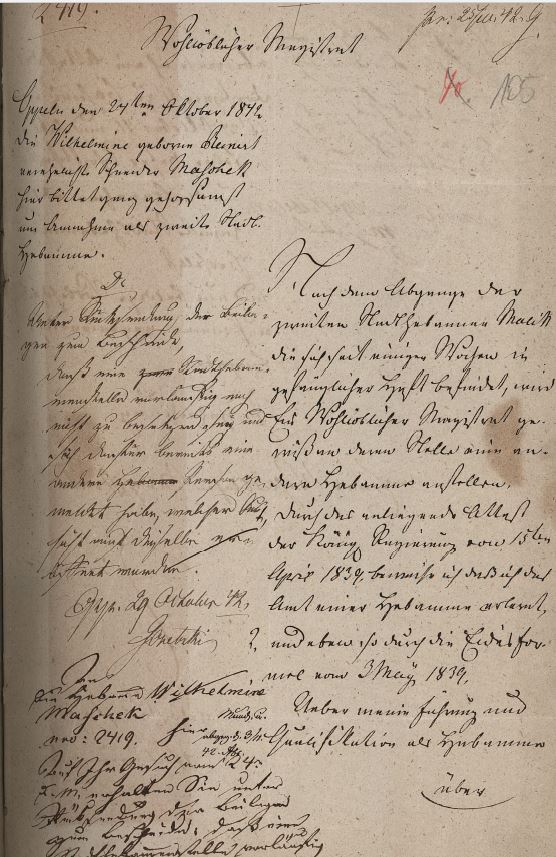 2419.
Wohllöblicher Magistrat
135
Oppeln den 24ten Oktober 1842
die Wilhelmine geborne Reinert
verehelichte Schneider Maschek
hier bittet ganz gehorsamst
um Annahme als zweite Stadt-
Hebamme.
Unter Rücksendung der Beila-
gen zum Bescheide,
daß eine Stadthebam-
menstelle vorläufig noch
nicht zu besetzen sey und
sich darum bereits eine
andere Person ge-
meldet habe, welcher
dieselbe er-
öffnet worden.
Opp. 29 October 42.
Nach dem Abgange der
zweiten Stadthebamme Malik
die sich seit einigen Wochen in
gefänglicher Haft befindet, wird
Ein Wohllöblicher Magistrat ge-
wiß an deren Stelle eine an-
dere Hebamme anstellen.
Durch das anliegende Attest
der König. Regierung vom 15ten
April 1839, beweise ich daß ich das
Amt einer Hebamme erlernt,
und eben so durch die Eidesfor-
mel vom 3 May 1839.
Ueber meine Führung und
Qualifikation als Hebamme
über
An
die Hebamme Wilhelmine
Maschek
hier
nro: 2419.
Auf Ihr Gesuch vom 24.
d. M. erhalten Sie unter
Rücksendung der Beilagen
zum Bescheide: daß eine
Hebammenstelle vorläufig